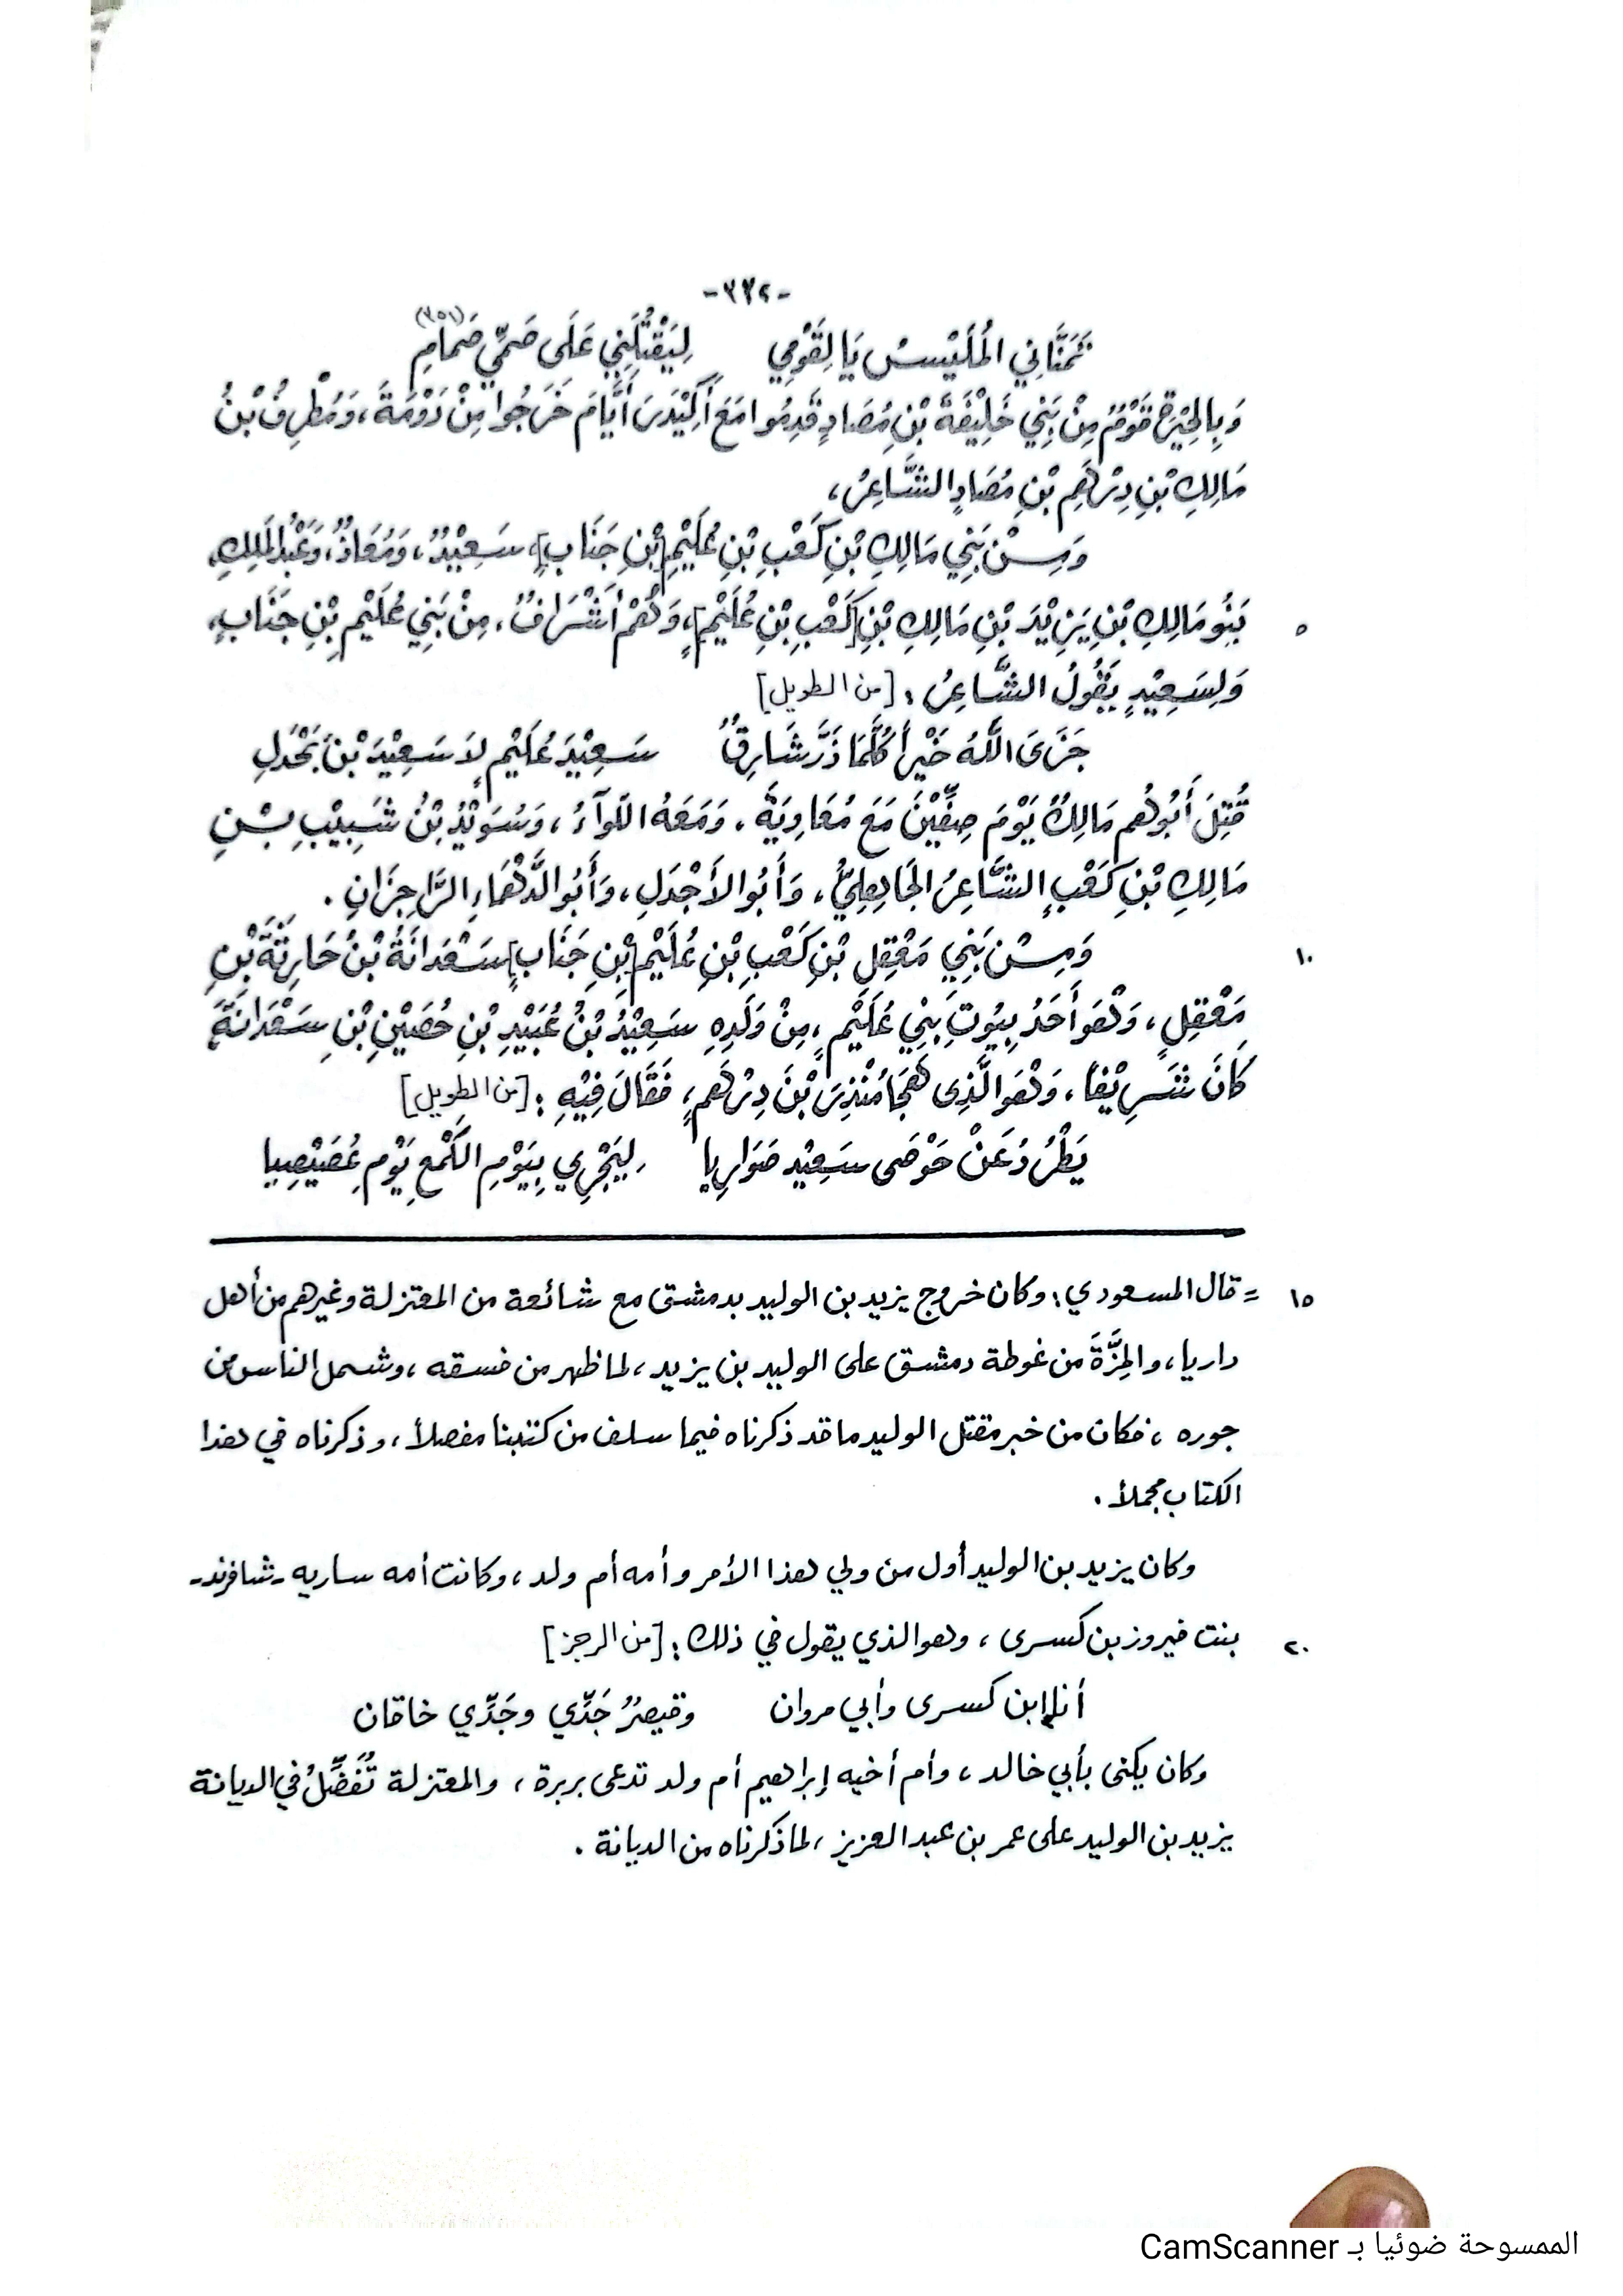 -٣٣٢-
تَمَنَّانِي المُلَيْسُ يَا لِقَوْمِي لِيَقْتُلَنِي عَلَى صَمِّي صَمَامِ (٣٥١)
وَبِالحِيْرَةِ قَوْمٌ مِنْ بَنِي خَلِيْفَةَ بْنِ مُصَادٍ قَدِمُوا مَعَ أُكَيْدَرَ أَيَّامَ خَرَجُوا مِنْ دَوْمَةَ، وَمُطْرِفُ بْنُ
مَالِكِ بْنِ دِرْهَمِ بْنِ مُصَادٍ الشَّاعِرُ،
وَمِنْ بَنِي مَالِكِ بْنِ كَعْبِ بْنِ عُلَيْمِ [بْنِ جَنَابٍ]، سَعِيْدٌ، وَمُعَاذٌ، وَعَبْدُ المَلِكِ،
٥ بَنُو مَالِكِ بْنِ يَزِيْدَ بْنِ مَالِكِ بْنِ [كَعْبِ بْنِ عُلَيْمٍ]، وَهُمْ أَشْرَافٌ، مِنْ بَنِي عُلَيْمِ بْنِ جَنَابٍ،
وَلِسَعِيْدٍ يَقُولُ الشَّاعِرُ : [من الطويل]
جَزَى اللَّهُ خَيْراً كُلَّمَا ذَرَّ شَارِقٌ سَعِيْدَ عُلَيْمٍ لاَ سَعِيْدَ بْنَ بَحْدَلِ
قُتِلَ أَبُوهُم مَالِكٌ يَوْمَ صِفِّيْنَ مَعَ مُعَاوِيَةَ، وَمَعَهُ اللّوَآءُ، وَسُوَيْدُ بْنُ شَبِيْبِ بْنِ
مَالِكِ بْنِ كَعْبٍ الشَّاعِرُ الجَاهِلِيُّ، وَأَبُو الأَجْدَلِ، وَأَبُو الدَّهْمَاءِ الرَّاجِزَانِ .
١٠ وَمِنْ بَنِي مَعْقِلِ بْنِ كَعْبِ بْنِ عُلَيْمِ [بْنِ جَنَابٍ] سَعْدَانَةُ بْنُ حَارِثَةَ بْنِ
مَعْقِلٍ، وَهُوَ أَحَدُ بِيُوتِ بَنِي عُلَيْمٍ، مِنْ وَلَدِهِ سَعِيْدُ بْنُ عُبَيْدِ بْنِ حُصَيْنِ بْنِ سَعْدَانَةَ،
كَانَ شَرِيْفاً، وَهُوَ الَّذِى هَجَا مُنْذِرَ بْنَ دِرْهَمٍ، فَقَالَ فِيْهِ : [من الطويل]
يَطْرُدُ عَنْ حَوْضَى سَعِيْدٍ ضَوَارِيا لِيَجْرِي بِيَوْمِ الكَمْعِ يَوْمِ عُصَيْصِيا
١٥ = قال المسعودي : وكان خروج يزيد بن الوليد بدمشق مع شائعة من المعتزلة وغيرهم من أهل
داريا، والمِزَّةَ من غوطة دمشق على الوليد بن يزيد، لما ظهر من فسقه، وشمل الناس من
جوره، فكان من خبر مقتل الوليد ما قد ذكرناه فيما سلف من كتبنا مفصلاً، وذكرناه في هذا
الكتاب مجملاً .
وكان يزيد بن الوليد أول من ولي هذا الأمر وأمه أم ولد، وكانت أمه ساريه - شافرند -
٢٠ بنت فيروز بن كسرى، وهو الذي يقول في ذلك : [من الرجز]
أنا إبن كسرى وأبي مروان وقيصرٌ جَدِّي وجَدِّي خاقان
وكان يكنى بأبي خالد، وأم أخيه إبراهيم أم ولد تدعى بربرة، والمعتزلة تُفَضِّلُ في الديانة
يزيد بن الوليد على عمر بن عبد العزيز، لما ذكرناه من الديانة .
الممسوحة ضوئيا بـ CamScanner